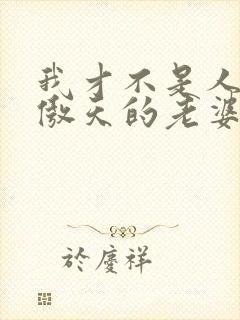 我才不是人
傲天的老婆
於慶祥